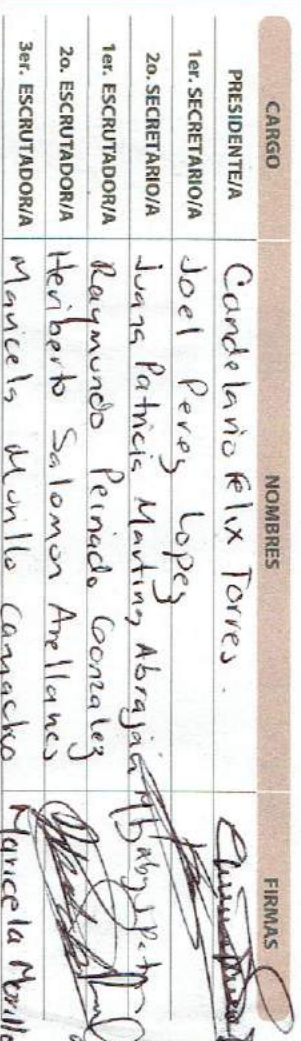 CARGO NOMBRES FIRMAS
PRESIDENTE/A Candelario Felix Torres.
1er. SECRETARIO/A Joel Perez Lopez
2o. SECRETARIO/A Juana Patricia Abrajan
1er. ESCRUTADOR/A Raymundo Peinado Gonzalez
2o. ESCRUTADOR/A Heriberto Salomon Arellanes
3er. ESCRUTADOR/A Maricela Murillo Camacho Maricela Murillo